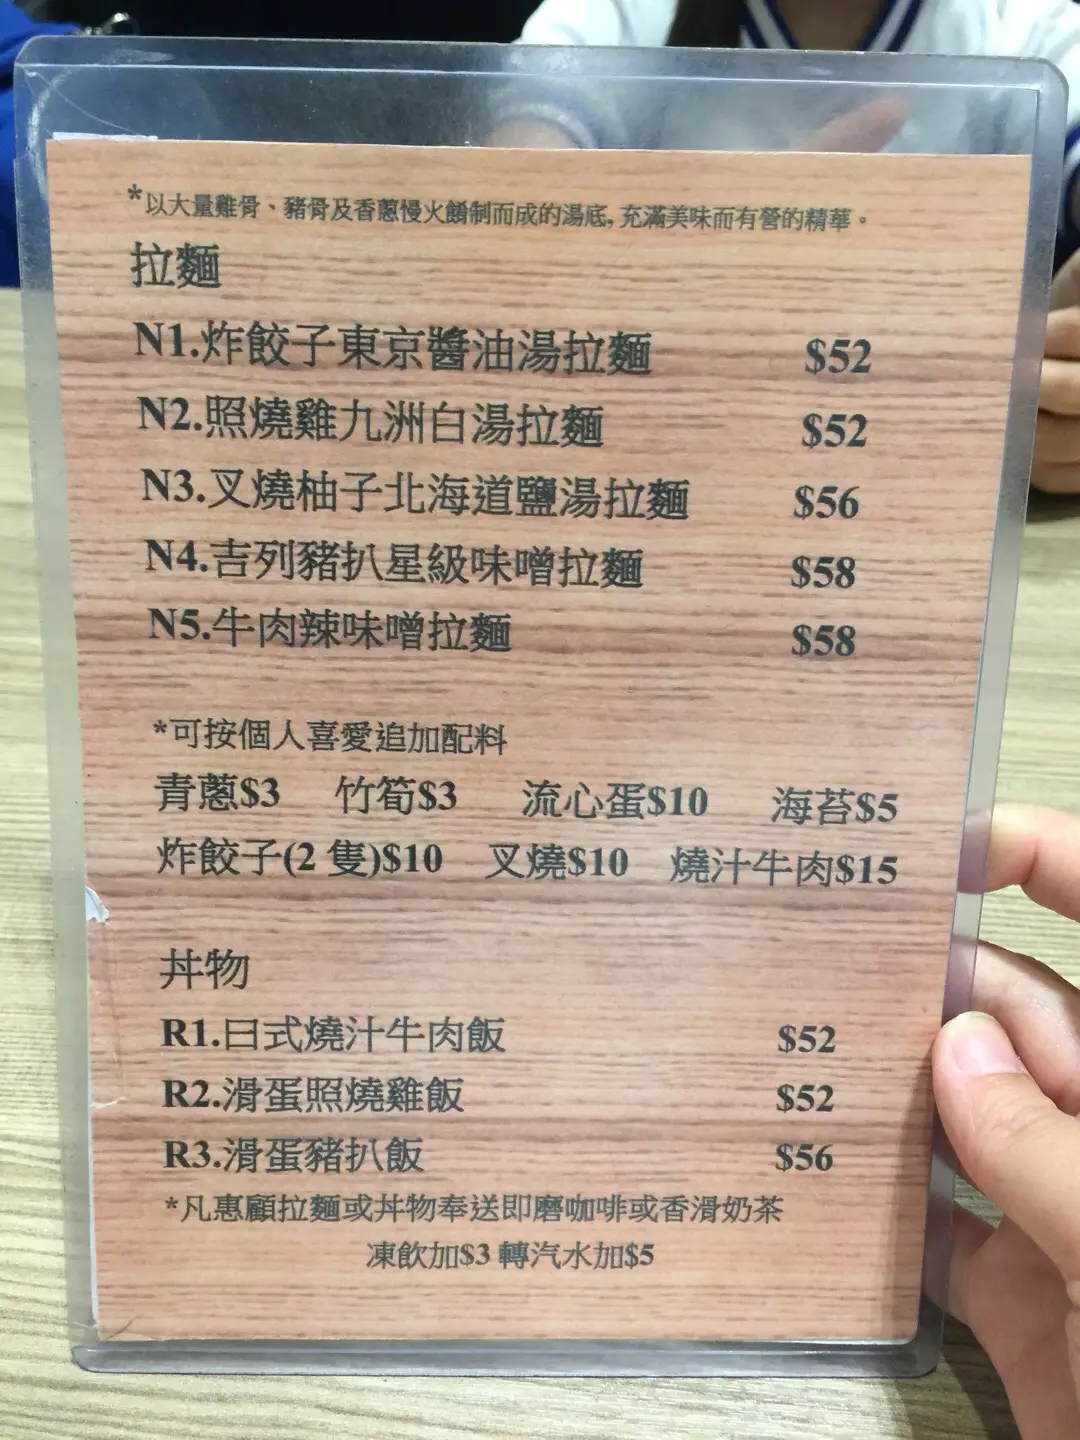 *以大量雞骨、豬骨及香蔥慢火餚制而成的湯底,充滿美味而有營的精華。
拉麵
N1.炸餃子東京醬油湯拉麵 $52
N2.照燒雞九洲白湯拉麵 $52
N3.叉燒柚子北海道鹽湯拉麵 $56
N4.吉列豬扒星級味噌拉麵 $58
N5.牛肉辣味噌拉麵 $58
*可按個人喜愛追加配料
青蔥$3 竹筍$3 流心蛋$10 海苔$5
炸餃子(2 隻)$10 叉燒$10 燒汁牛肉$15
丼物
R1.日式燒汁牛肉飯 $52
R2.滑蛋照燒雞飯 $52
R3.滑蛋豬扒飯 $56
*凡惠顧拉麵或丼物奉送即磨咖啡或香滑奶茶
凍飲加$3 轉汽水加$5